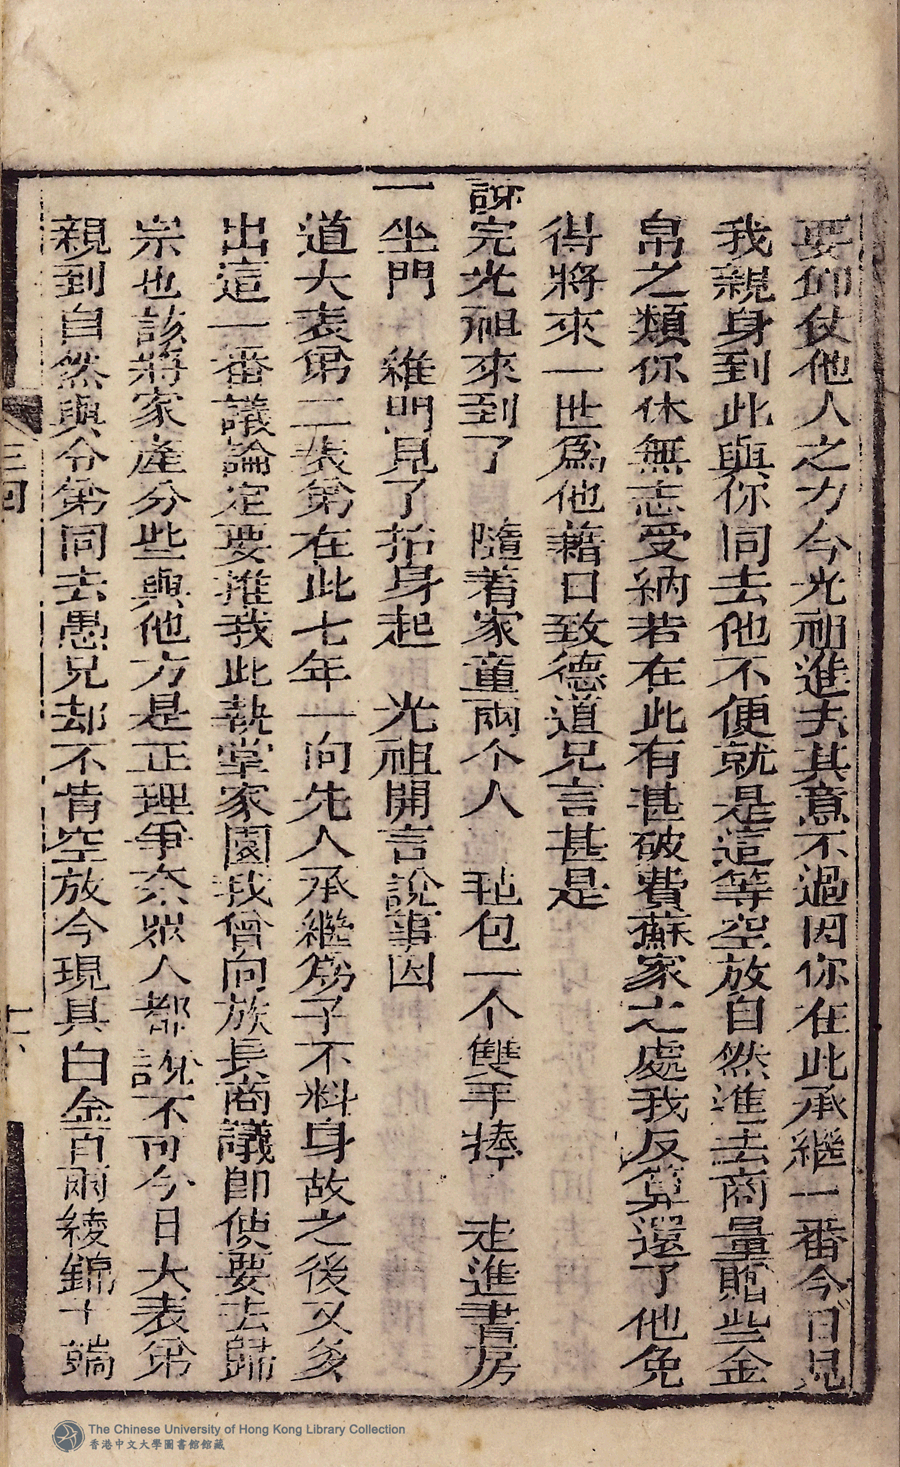 要仰仗他人之力今光祖進去其意不過因你在此承繼一番今日見
我親身到此與你同去他不便就是這等空放自然進去商量贈些金
帛之類你休無志受納若在此有甚破費蘇家之處我反算還了他免
得將來一世爲他藉口致德道兄言甚是
說完光祖來到了　隨着家童兩个人　毡包一个雙手捧　走進書房
一坐門　維明見了抬身起　光祖開言說事因
道大表弟二表弟在此七年一向先人承繼爲子不料身故之後又多
出這一番議論定要推我此執掌家園我曾向族長商議即使要去歸
宗也該將家產分些與他方是正理爭奈眾人都說不可今日大表弟
親到自然與令弟同去愚兄却不肯空放今現具白金百兩綾錦十端
三回
十一
The Chinese University of Hong Kong Library Collection
香港中文大學圖書館館藏